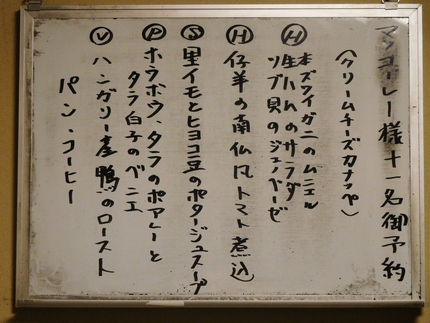 様十一名御予約
(クリームチーズカナッペ)
Ⓗ 本ズワイガニのムニエル
生ハムのサラダ
ツブ貝のジェノベーゼ
Ⓗ 仔羊の南仏風トマト煮込
Ⓢ 里イモとヒヨコ豆のポタージュスープ
Ⓟ ホウボウ、タラのポアレーと
タラ白子のベニエ
Ⓥ ハンガリー産鴨のロースト
パン、コーヒー